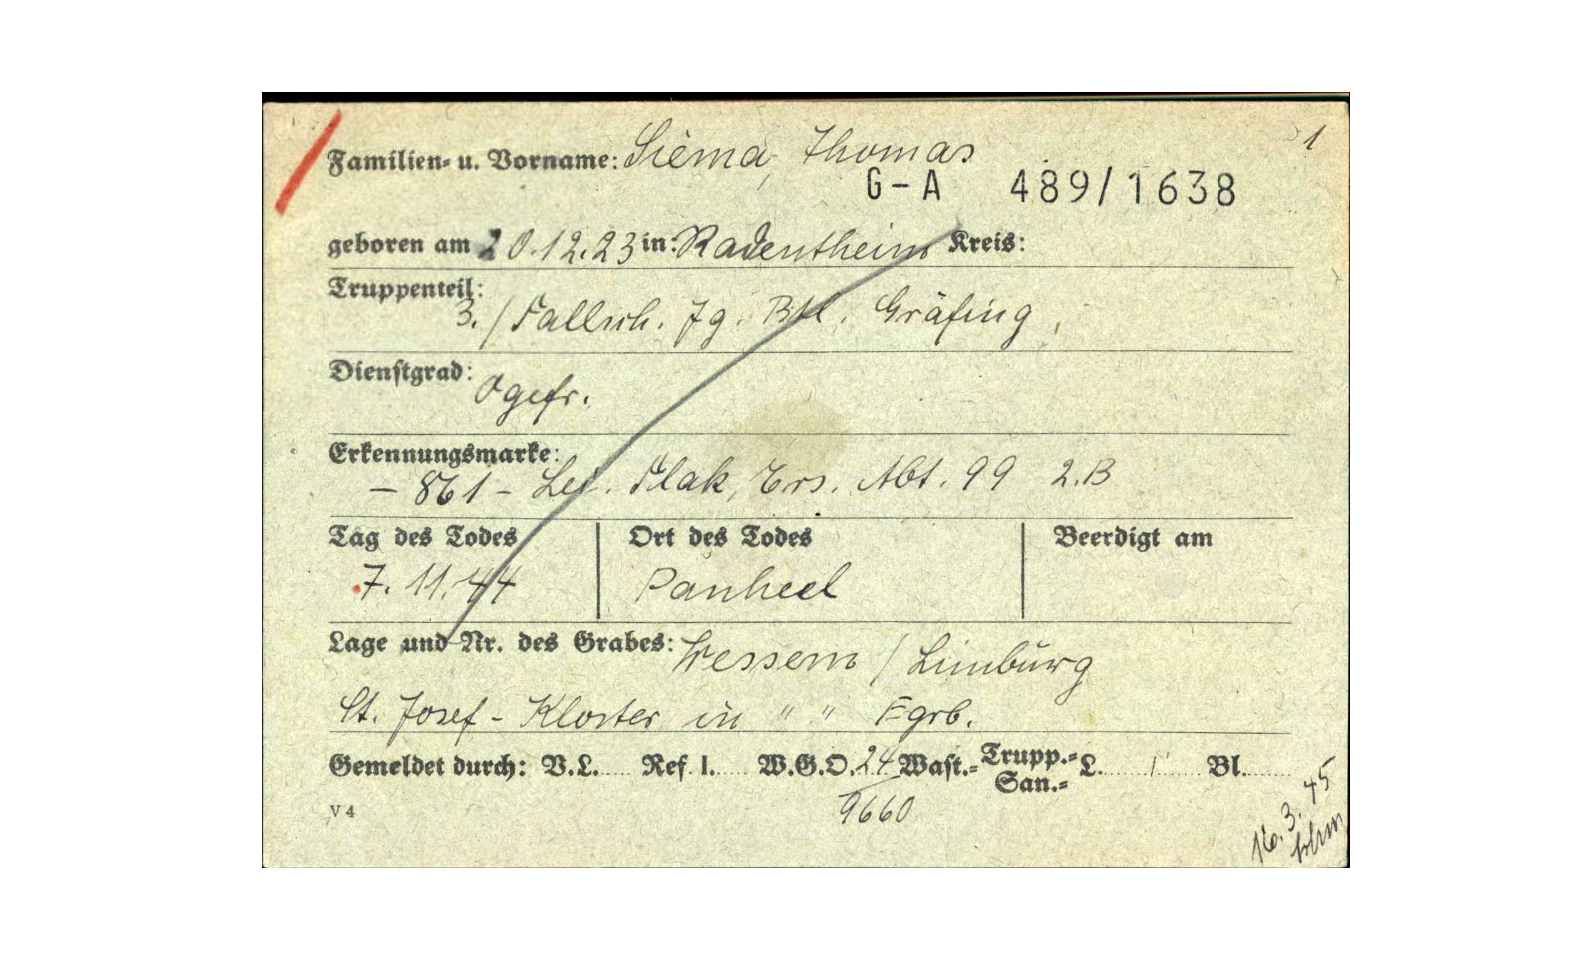 1
Familien- u. Vorname: Siema, Thomas
G-A 489/1638
geboren am 20.12.23 in: Radentheim Kreis:
Truppenteil:
3./Fallsch. Jg. Btl. Gräfing
Dienstgrad: Ogefr.
Erkennungsmarke:
- 861 - Lei. Flak, Ers. Abt. 99 2.B
Tag des Todes Ort des Todes Beerdigt am
7.11.44 Panheel
Lage und Nr. des Grabes: Wessem / Limburg
St. Josef-Kloster in " " Egrb.
Gemeldet durch: V.L. Ref. I. W.G.O. 24 Wast.- Trupp.- San.- L. Bl.
9660
V 4
16.3.45